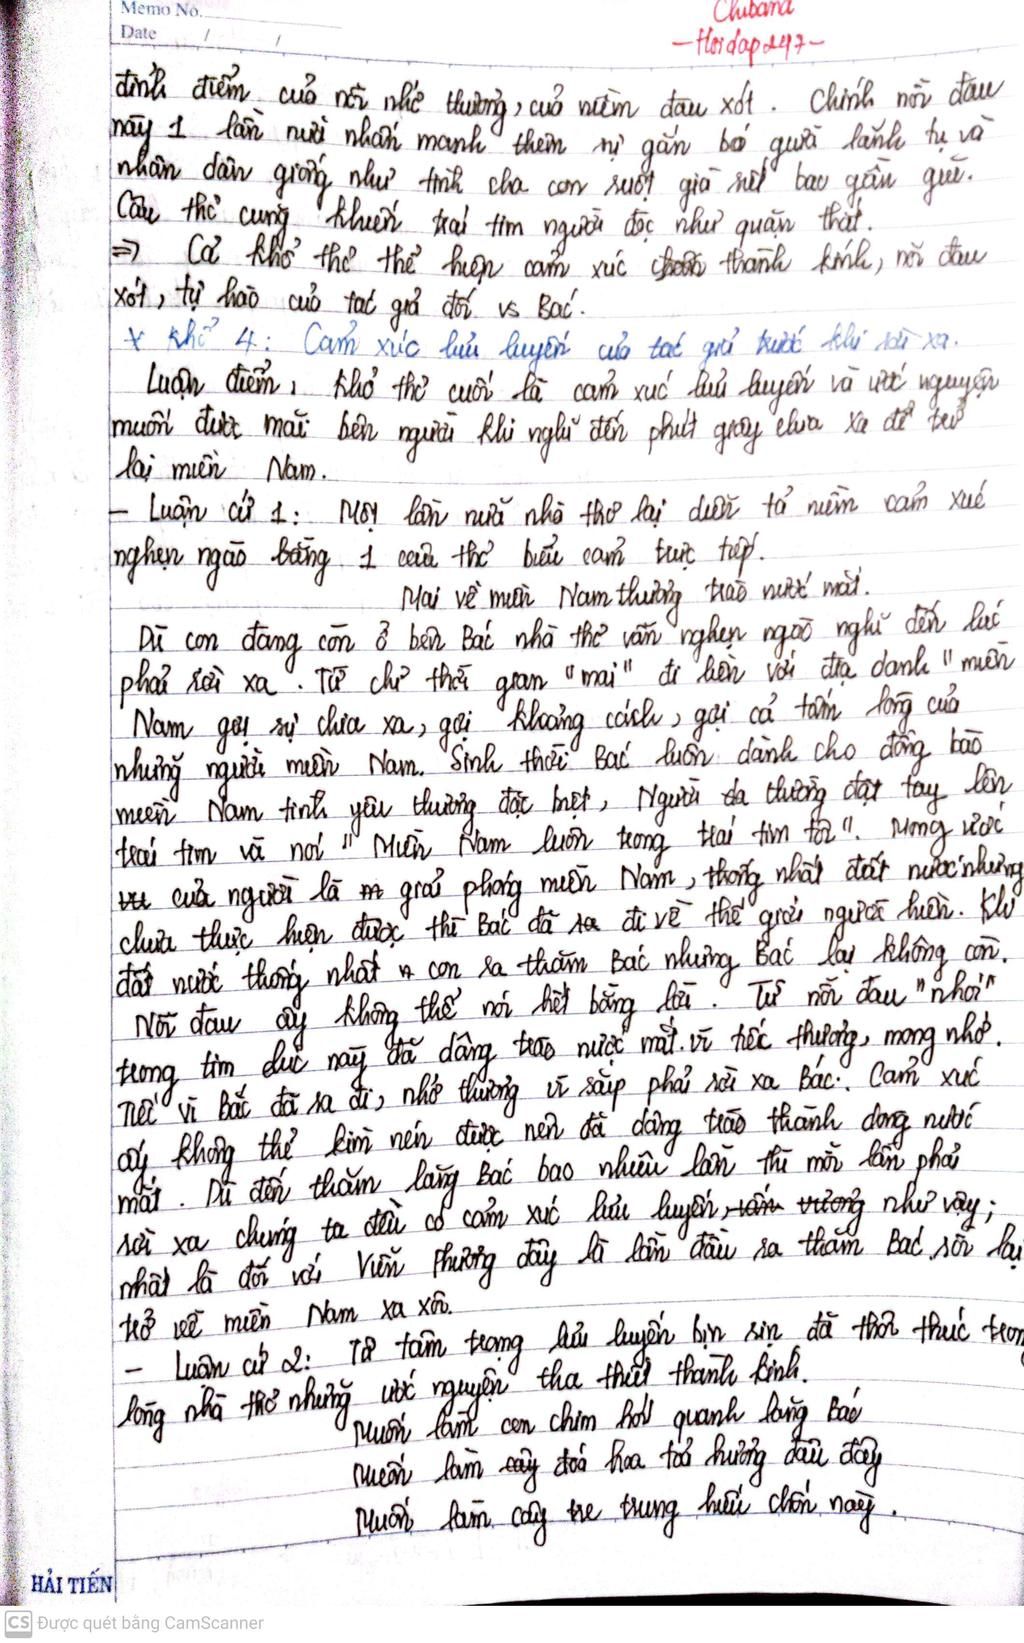 Memo No.
Date / /
Chibana
- Hoidap247 -
đỉnh điểm của nỗi nhớ thương, của niềm đau xót. Chính nỗi đau
này 1 lần nữa nhấn mạnh thêm sự gắn bó giữa lãnh tụ và
nhân dân giống như tình cha con ruột già xiết bao gần gũi.
Câu thơ cũng khiến trái tim người đọc như quặn thắt.
=> Cả khổ thơ thể hiện cảm xúc thành kính, nỗi đau
xót, tự hào của tác giả đối vs Bác.
* Khổ 4: Cảm xúc lưu luyến của tác giả trước khi rời xa.
Luận điểm: Khổ thơ cuối là cảm xúc lưu luyến và ước nguyện
muốn được mãi bên người khi nghĩ đến phút giây chia xa để trở
lại miền Nam.
- Luận cứ 1: Một lần nữa nhà thơ lại diễn tả niềm cảm xúc
nghẹn ngào bằng 1 câu thơ biểu cảm trực tiếp.
Mai về miền Nam thương trào nước mắt.
Dù con đang còn ở bên Bác nhà thơ vẫn nghẹn ngào nghĩ đến lúc
phải rời xa. Từ chỉ thời gian "mai" đi liền với địa danh "miền
Nam gợi sự chia xa, gợi khoảng cách, gợi cả tấm lòng của
những người miền Nam. Sinh thời Bác luôn dành cho đồng bào
miền Nam tình yêu thương đặc biệt, Người đa thường đặt tay lên
trái tim và nói "Miền Nam luôn trong trái tim tôi". Mong ước
của người là giải phóng miền Nam, thống nhất đất nước nhưng
chưa thực hiện được thì Bác đã ra đi về thế giới người hiền. Khi
đất nước thống nhất con ra thăm Bác nhưng Bác lại không còn.
Nỗi đau ấy không thể nói hết bằng lời. Từ nỗi đau "nhói"
trong tim lúc này đã dâng trào nước mắt vì tiếc thương, mong nhớ.
Tiếc vì Bác đã ra đi, nhớ thương vì sắp phải rời xa Bác. Cảm xúc
ấy không thể kìm nén được nên đã dâng trào thành dòng nước
mắt. Dù đến thăm lăng Bác bao nhiêu lần thì mỗi lần phải
rời xa chúng ta đều có cảm xúc lưu luyến, vấn vương như vậy;
nhất là đối với Viễn Phương đây là lần đầu ra thăm Bác rồi lại
trở về miền Nam xa xôi.
- Luận cứ 2: Từ tâm trạng lưu luyến bịn rịn đã thôi thúc tron
lòng nhà thơ những ước nguyện tha thiết thành kính.
Muốn làm con chim hót quanh lăng Bác
Muốn làm cây đoá hoa toả hương đâu đây
Muốn làm cây tre trung hiếu chốn này.
HẢI TIẾN
CS Được quét bằng CamScanner